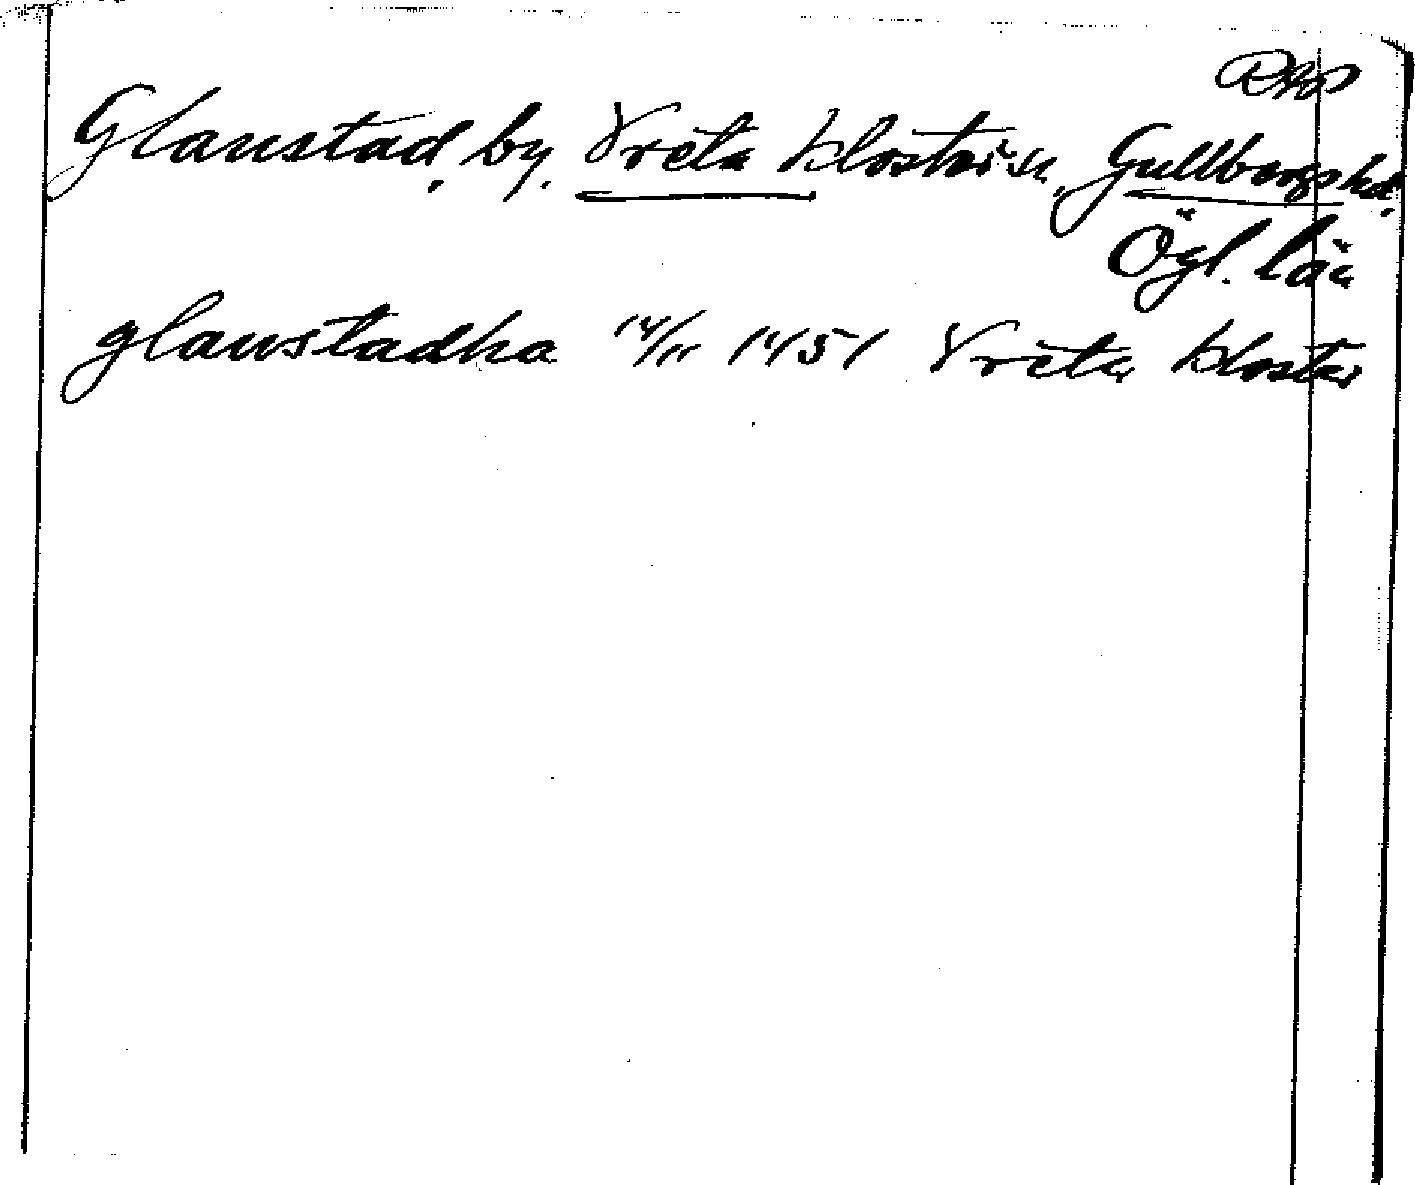 RAP
Glanstad, by, Vreta klosters sn, Gullbergs hd.
Ögl. län
glanstadha 14/11 1451 Vreta kloster